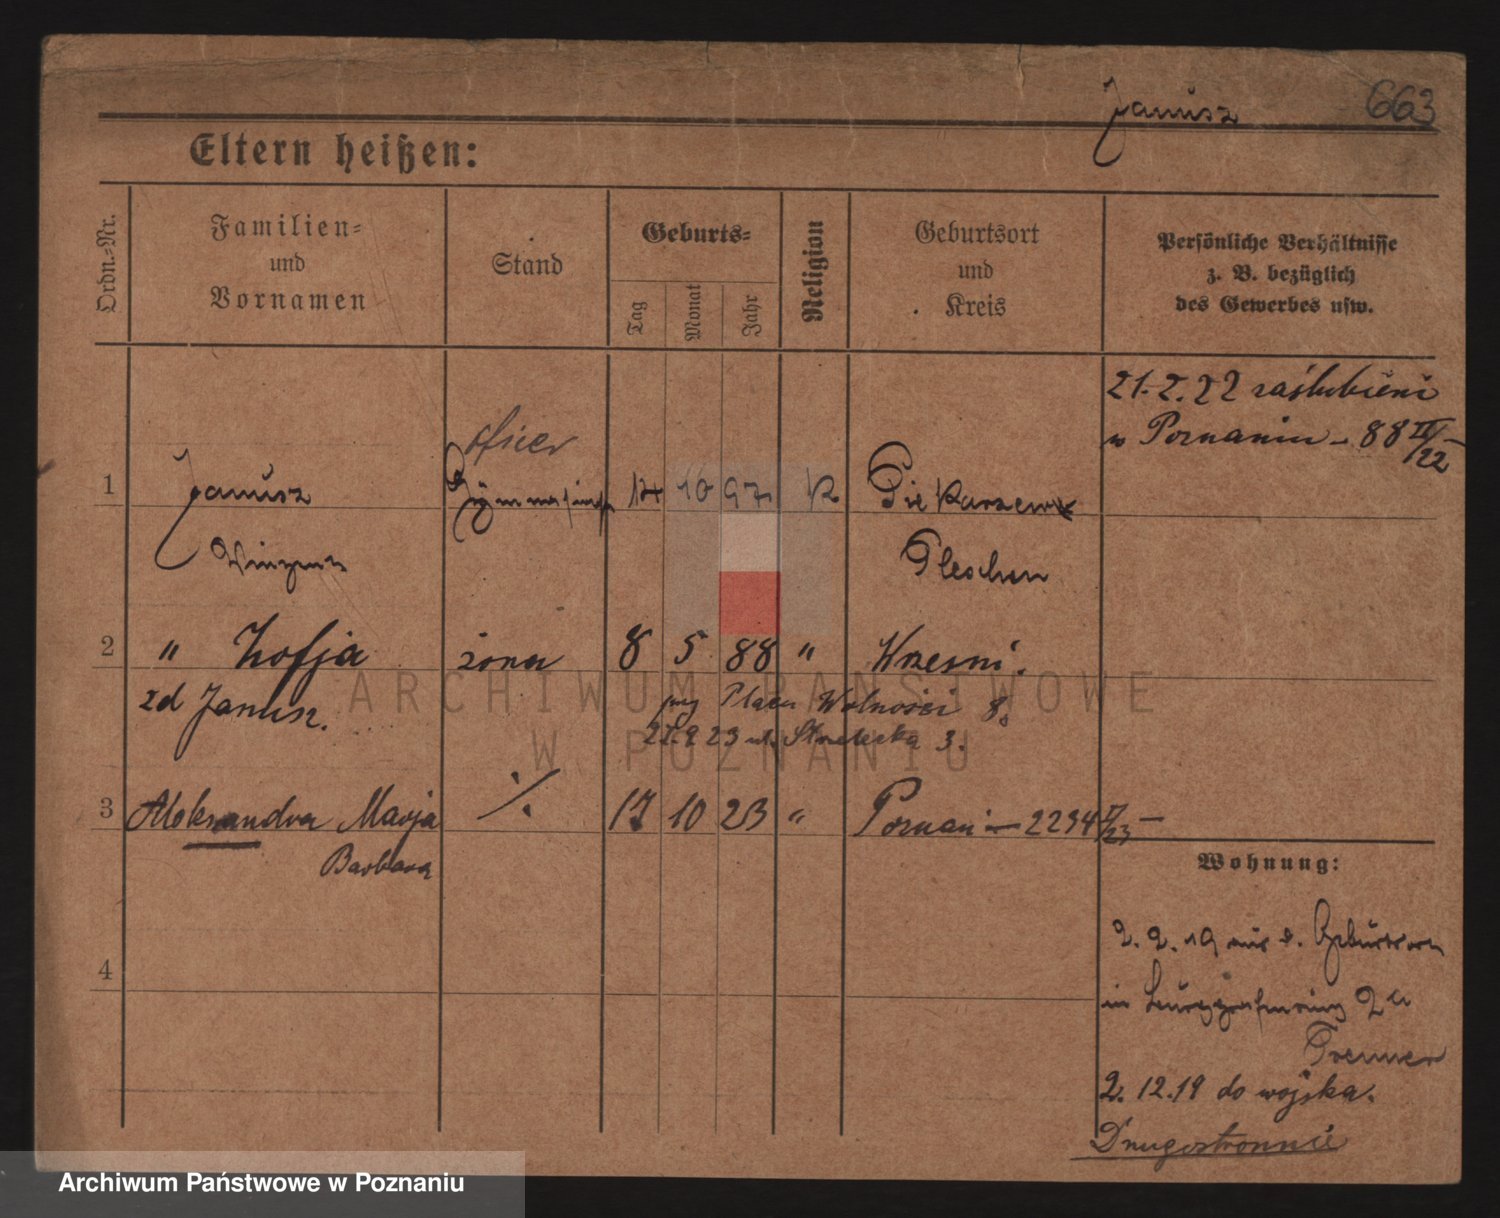 Janusz 663
Eltern heißen:
Ordn.-Nr.
Familien-
und
Vornamen
Stand
Geburts-
Tag
Monat
Jahr
Religion
Geburtsort
und
Kreis
Persönliche Verhältnisse
z. B. bezüglich
des Gewerbes usw.
21.2.22 zaślubieni
w Poznaniu - 88 III/22
1 Janusz 14 10 97 K Piekarzew
Vinzenz Pleschen
2 " Zofja żona 8 5 88 " Wrześni.
zd Janusz. Placu Wolności 8.
23 ul. Strzelecka 3.
3 Aleksandra Marja ./. 17 10 23 " Poznań - 2234 /23 -
Barbara
4
Wohnung:
2. 2. 19 aus d. Geburtsort
in 2a
Tremmer
2. 12. 19 do wojska.
Drugostronnie
ARCHIWUM PAŃSTWOWE
W POZNANIU
Archiwum Państwowe w Poznaniu